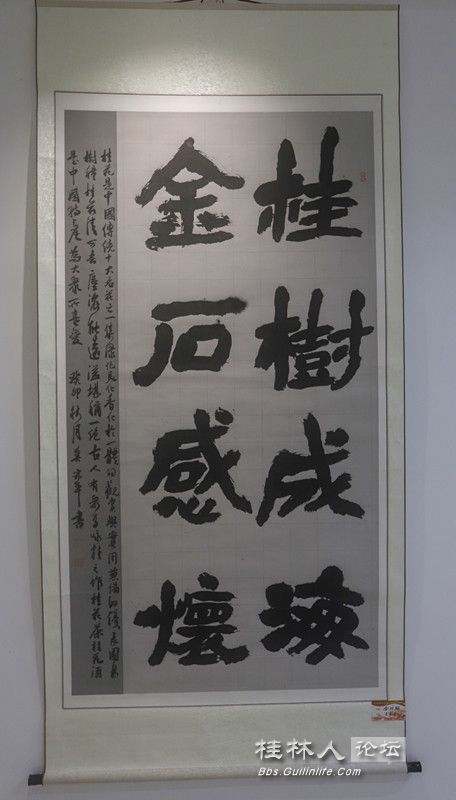 桂樹成海
金石感懷
桂花是中國傳統十大名花之一集綠化美化香化於一體的觀賞與實用兼備的優良園林
樹種桂花清可去塵濃能遠溢堪稱一絕古人有眾多咏桂之作桂花茶桂花酒
是中國特產為大眾所喜愛 癸卯秋月吳
書
桂林人论坛
Bbs.Guilinlife.Com